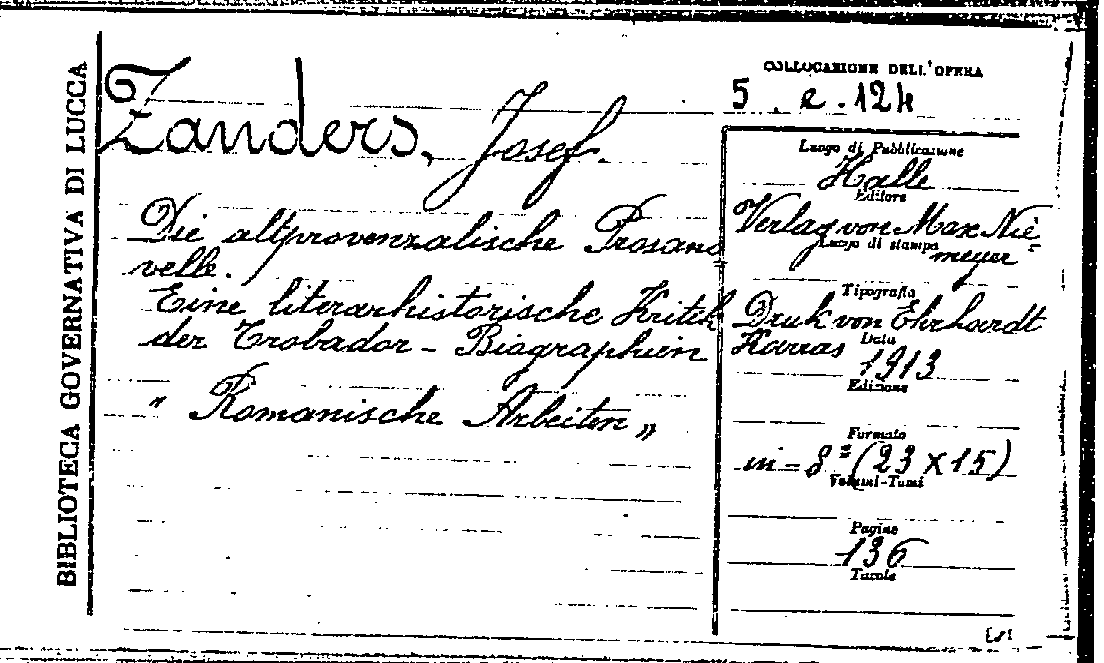 BIBLIOTECA GOVERNATIVA DI LUCCA
Zanders, Josef.
Die altprovenzalische Prosano
velle.
Eine literarhistorische Kritik
der Trobador - Biographien
" Romanische Arbeiten „
COLLOCAZIONE DELL'OPERA
5 . e . 124
Luogo di Pubblicazione
Halle
Editore
Verlag von Max Niè-
Luogo di stampa
meyer
Tipografia
Druk von Ehrhardt
Karras
Data
1913
Edizione
Formato
in-8º (23 x 15)
Volumi-Tomi
Pagine
136
Tavole